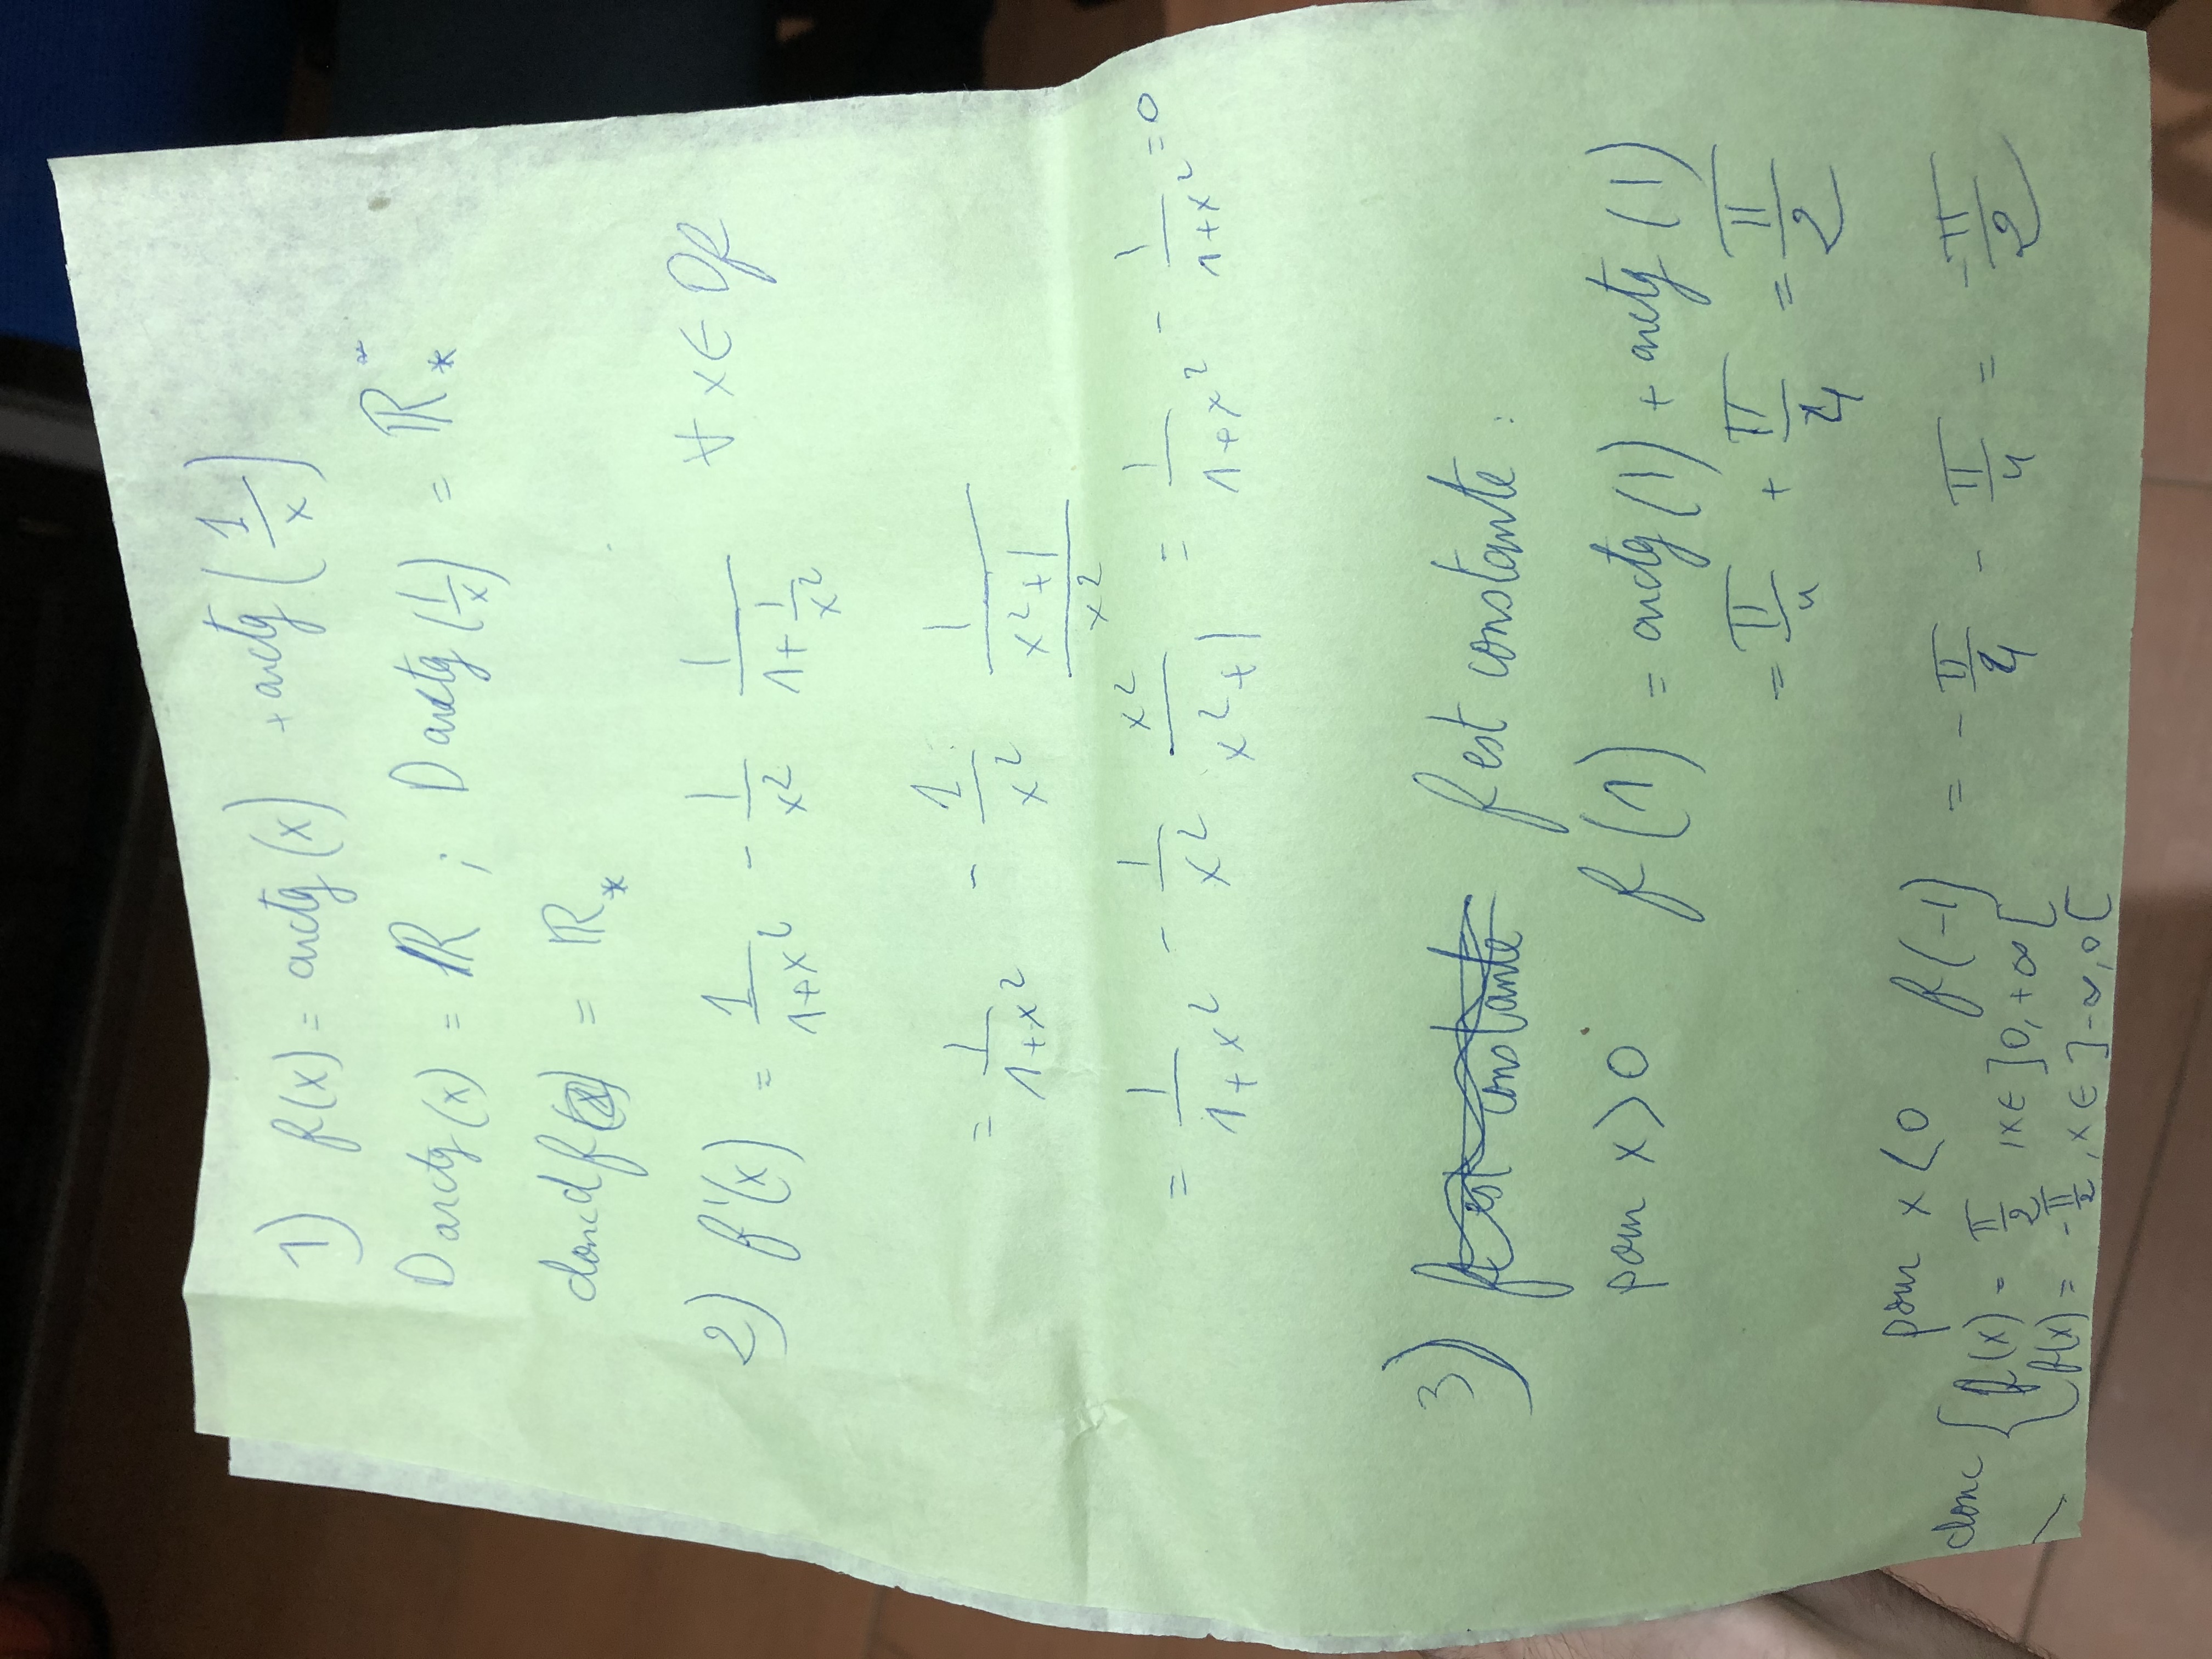 1) f(x) = arctg(x) + arctg(1/x)
D arctg(x) = ℝ ; D arctg(1/x) = ℝ*
donc df = ℝ*
2) f'(x) = 1/(1+x²) - 1/x² 1/(1+1/x²) ∀ x ∈ Df
= 1/(1+x²) - 1/x² 1/((x²+1)/x²)
= 1/(1+x²) - 1/x² x²/(x²+1) = 1/(1+x²) - 1/(1+x²) = 0
3) f est constante f est constante :
pour x > 0 f(1) = arctg(1) + arctg(1)
= π/4 + π/4 = π/2
pour x < 0 f(-1) = -π/4 - π/4 = -π/2
donc { f(x) = π/2 , x ∈ ]0, +∞[
f(x) = -π/2 , x ∈ ]-∞, 0[